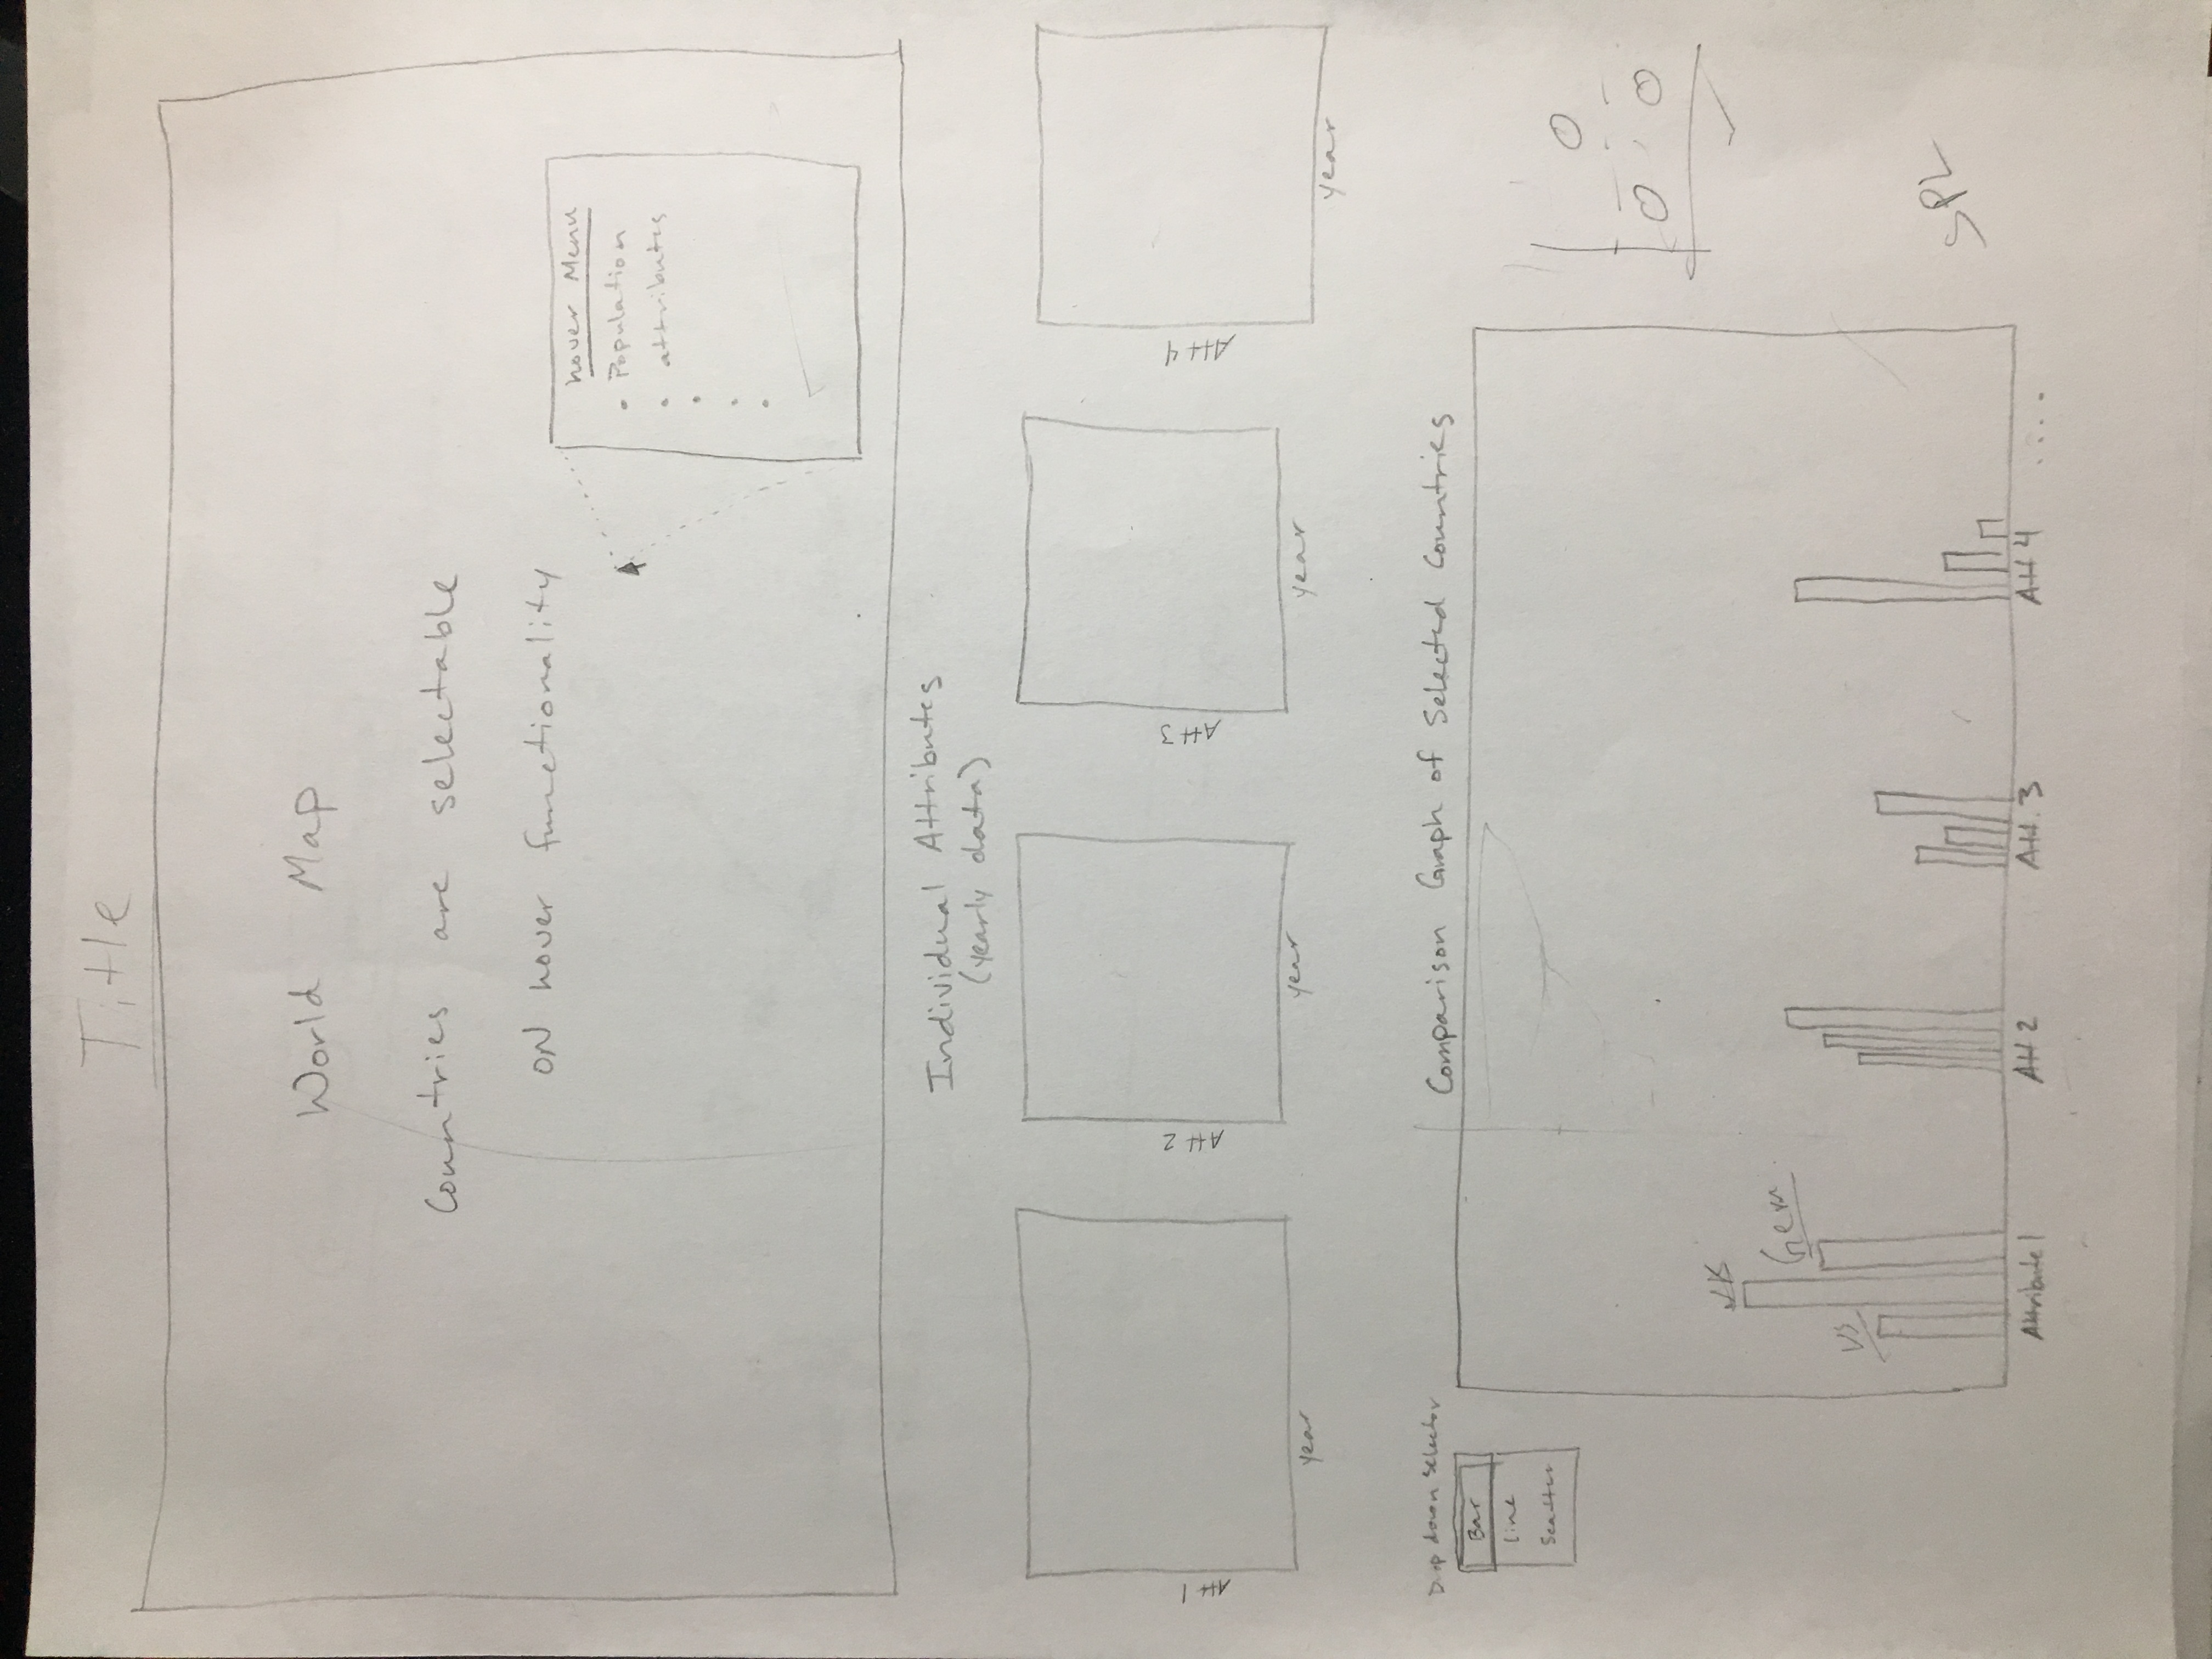 Title
World Map
Countries are selectable
ON hover functionality
hover Menu
• Population
• attributes
•
•
•
Individual Attributes
(yearly data)
Att 1
year
Att 2
year
Att 3
year
Att 4
year
Drop down Selector
Bar
line
Scatter
Comparison Graph of Selected Countries
US
UK
Germ.
Attribute 1
Att 2
Att. 3
Att 4
....
SPL